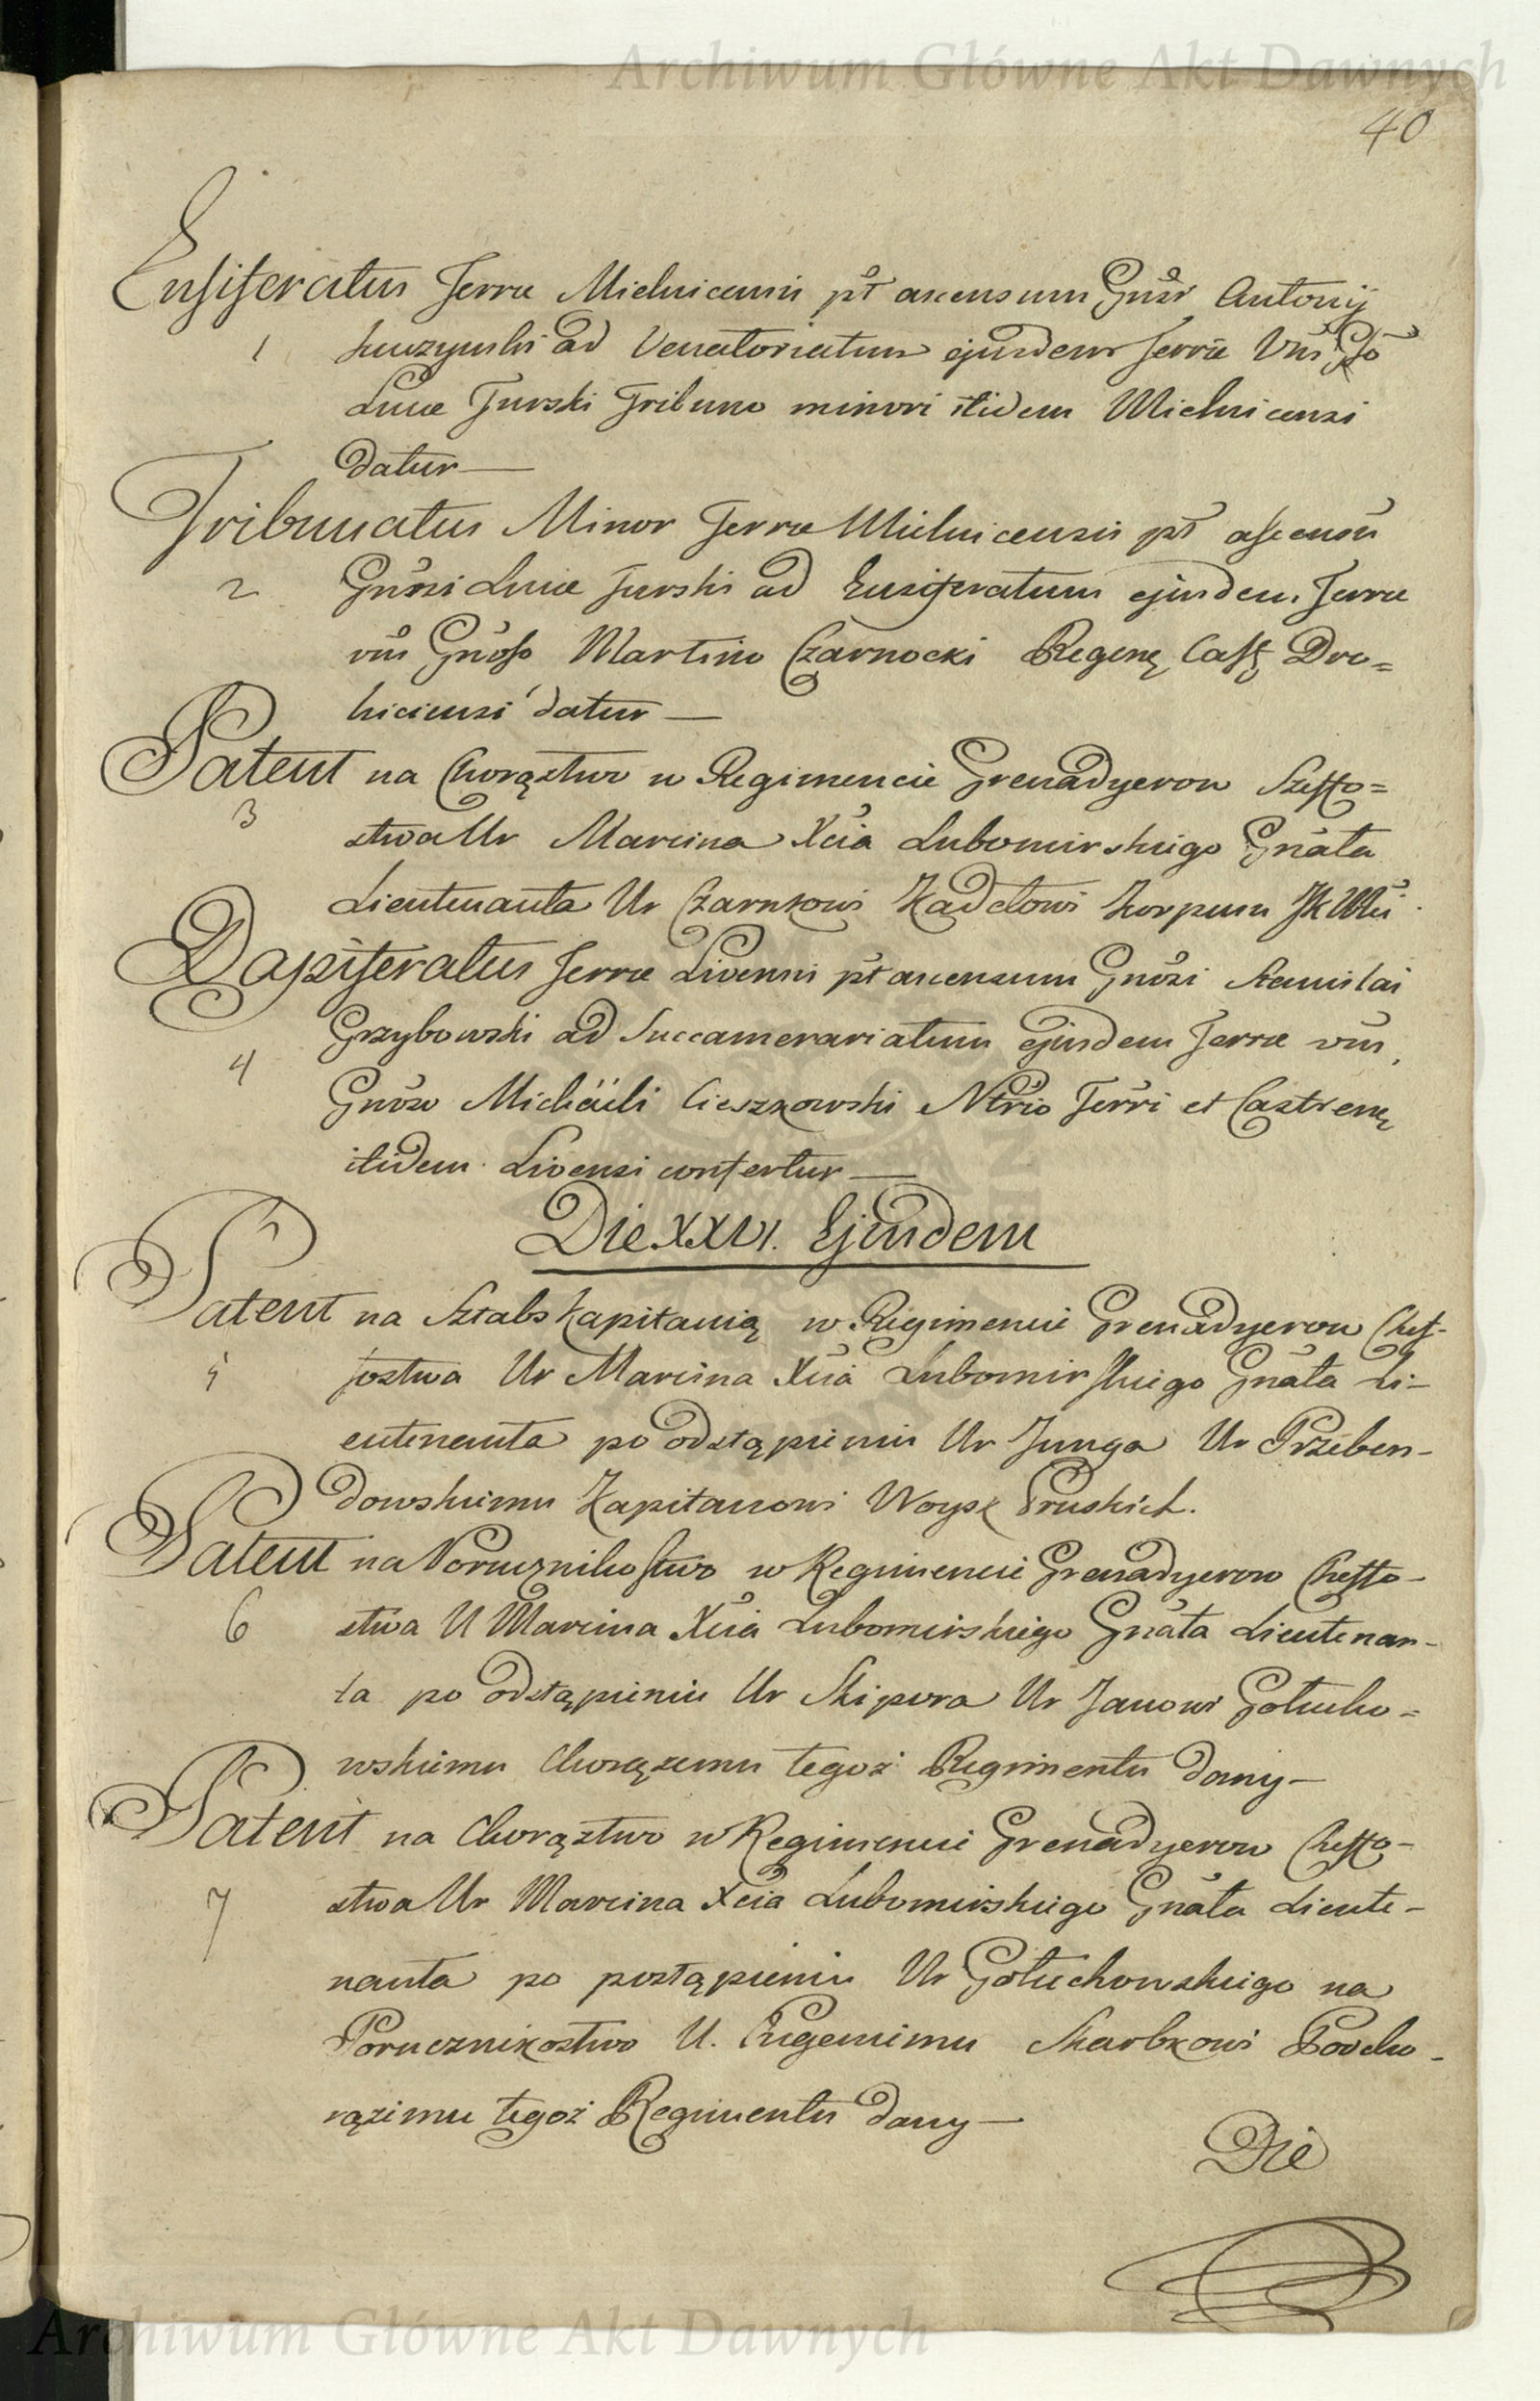 Archiwum Główne Akt Dawnych
40
Ensiferatus Terræ Mielnicensis pt ascensum Gnsi Antonij
1 ad Venatoriatum ejusdem Terræ Vns Gso
Lucæ Turski Tribuno minori itidem Mielnicensi
datur —
Tribunatus Minor Terræ Mielnicensis pt ascensu
2 Gnosi Lucæ Turski ad Ensiferatum ejusdem Terræ
vns Gnoso Martino Czarnocki Regenę Cast Dro=
hiciensi datur —
Patent na Chorąztwo w Regimencie Grenadyerow Szeffo=
3 stwa Ur Marcina Xcia Lubomirskiego Gnała
Lieutenanta Ur Czarnkowi Kadetowi Korpusu JK
Dapiferatus Terræ Livensis pt ascensum Gnosi Stanislai
Grzybowski ad Succamerariatum ejusdem Terræ vns
4 Gnoso Michäeli Cieszkowski Ntrio Terri et Castrenę
itidem Livensi confertur —
Die XXVI. Ejusdem
Patent na Sztabs Kapitanią w Regimencie Grenadyerow Chef-
5 fostwa Ur Marcina Xcia Lubomirskiego Gnała Li-
eutenanta po odstąpieniu Ur Junga Ur Przeben-
dowskiemu Kapitanowi Woysk Pruskich.
Patent na Porucznikostwo w Regimencie Grenadyerow Cheffo-
6 stwa U Marcina Xcia Lubomirskiego Gnała Lieutenan-
ta po odstąpieniu Ur Skipora Ur Janowi Gołucho=
wskiemu Chorązemu tegoż Regimentu dany —
Patent na Chorąztwo w Regimencie Grenadyerow Cheffo-
7 stwa Ur Marcina Xcia Lubomirskiego Gnała Lieute-
nanta po postąpieniu Ur Gołuchowskiego na
Porucznikostwo U. Eugeniemu Skarbkowi Podcho-
rązemu tegoż Regimentu dany —
Die
Archiwum Główne Akt Dawnych